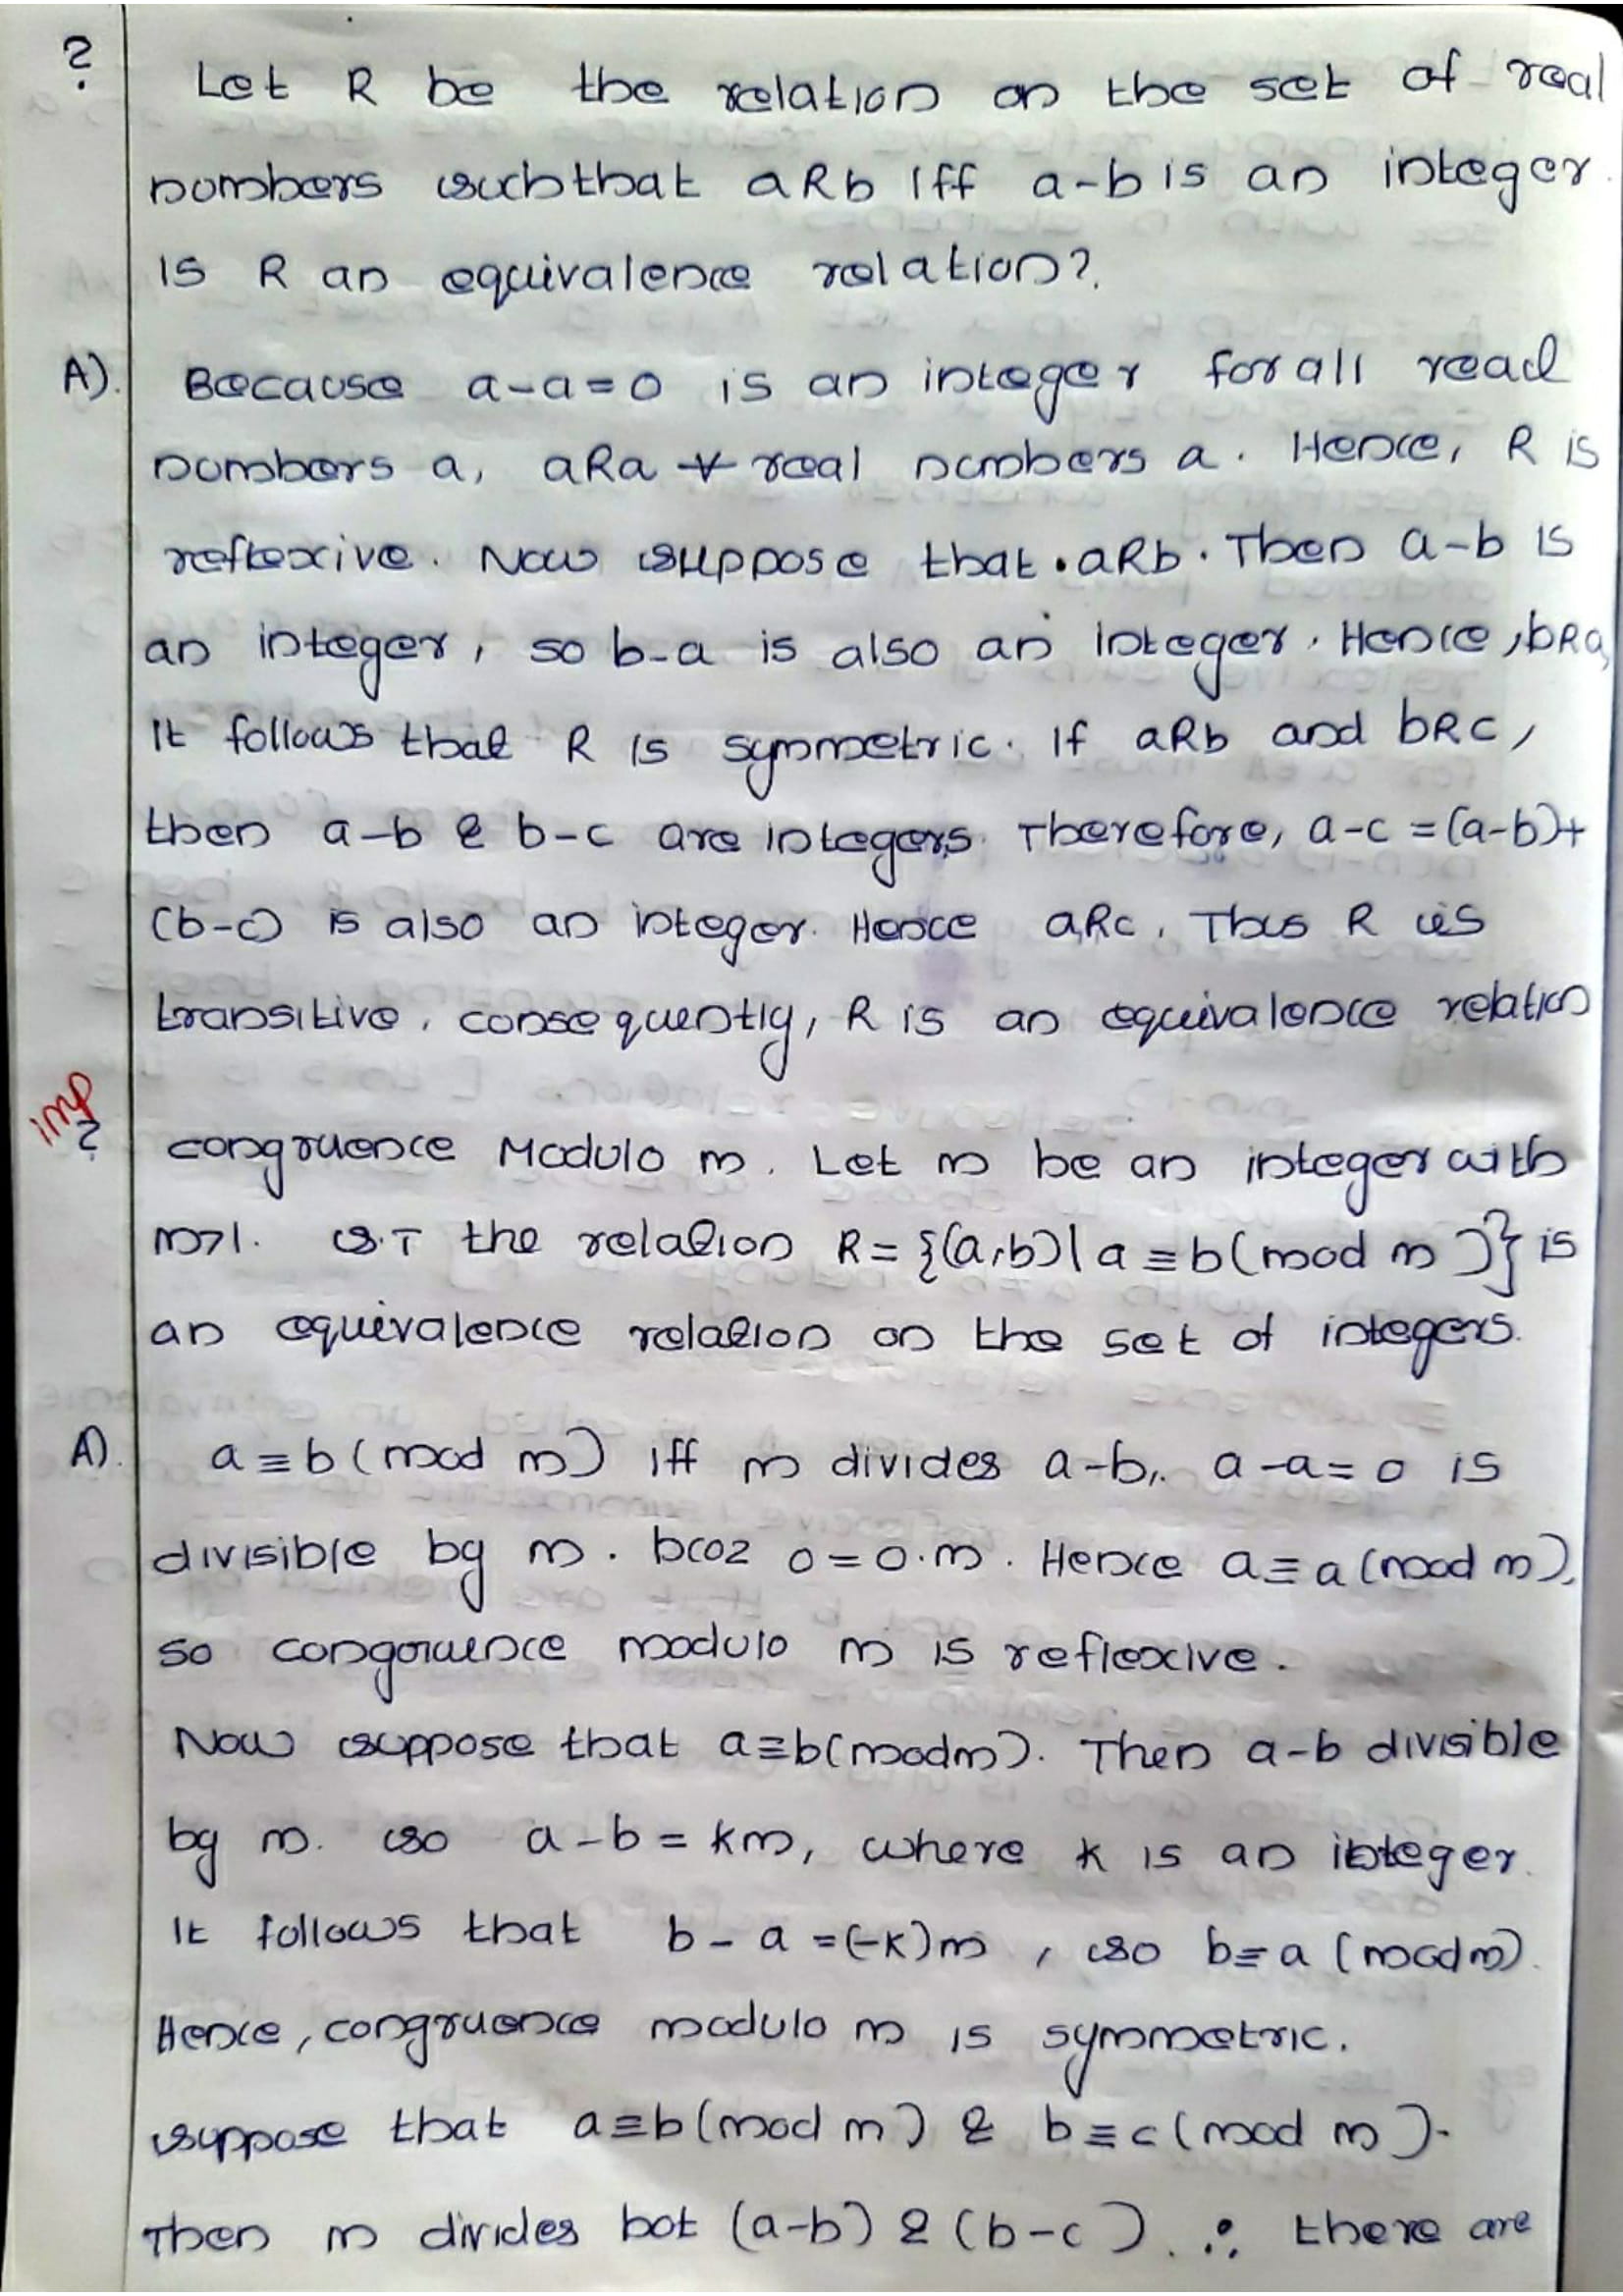 ?
Let R be the relation on the set of real
numbers such that aRb iff a-b is an integer.
is R an equivalence relation?
A). Because a-a=0 is an integer for all real
numbers a, aRa ∀ real numbers a. Hence, R is
reflexive. Now suppose that aRb. Then a-b is
an integer, so b-a is also an integer. Hence, bRa,
It follows that R is symmetric. If aRb and bRc,
then a-b & b-c are integers. Therefore, a-c =(a-b)+
(b-c) is also an integer. Hence aRc. Thus R is
transitive, consequently, R is an equivalence relation
imp
? congruence Modulo m. Let m be an integer with
m>1. S.T the relation R={(a,b)| a≡b(mod m)} is
an equivalence relation on the set of integers.
A). a≡b(mod m) iff m divides a-b,. a-a=0 is
divisible by m. bcoz 0=0.m. Hence a≡a(mod m),
so congruence modulo m is reflexive.
Now suppose that a≡b(mod m). Then a-b divisible
by m. so a-b=km, where k is an integer.
It follows that b-a=(-k)m, so b≡a(mod m).
Hence, congruence modulo m is symmetric.
suppose that a≡b(mod m) & b≡c(mod m).
Then m divides bot (a-b) & (b-c). ∴ there are